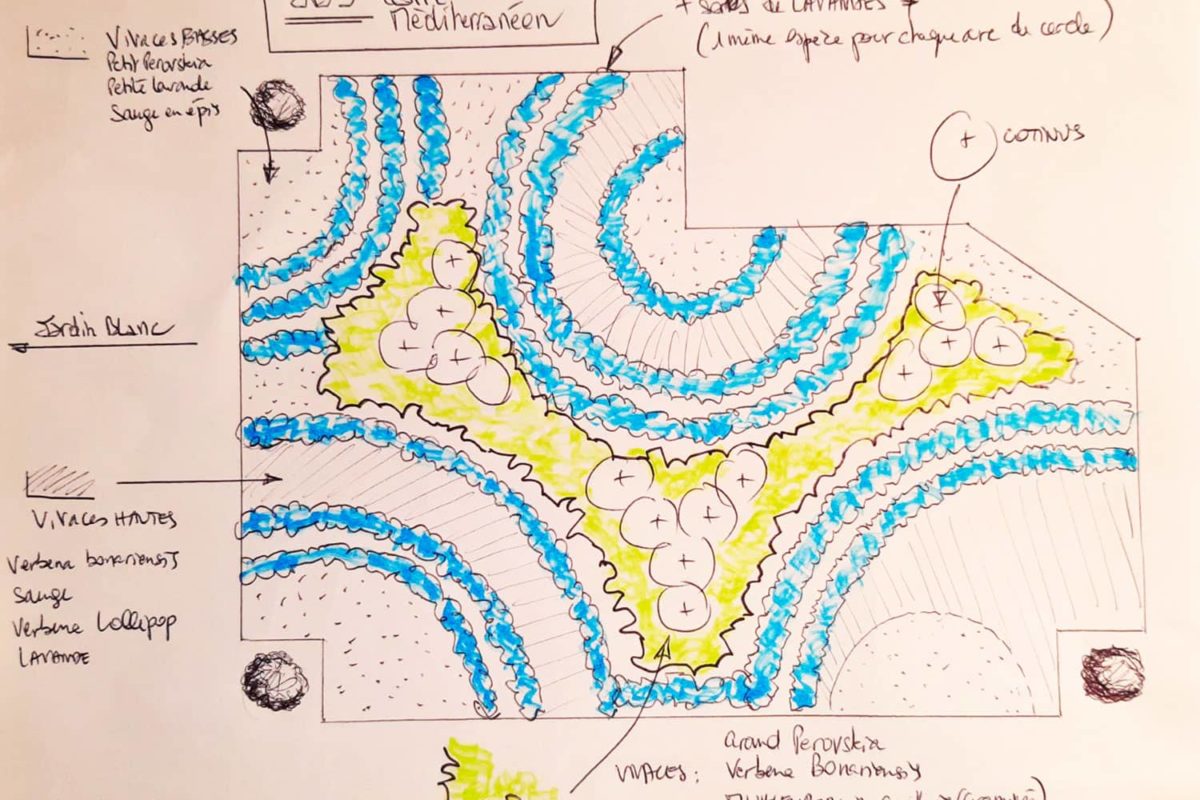 Méditerranéen
DE LAVANDES
(1 même espèce pour chaque arc de cercle)
VIVACES BASSES
Petit Perovskia
Petite lavande
Sauge en épis
COTINUS
Jardin Blanc
VIVACES HAUTES
Verbena bonariensis
Sauge
Verbene Lollipop
LAVANDE
Grand Perovskia
VIVACES: Verbena Bonariensis